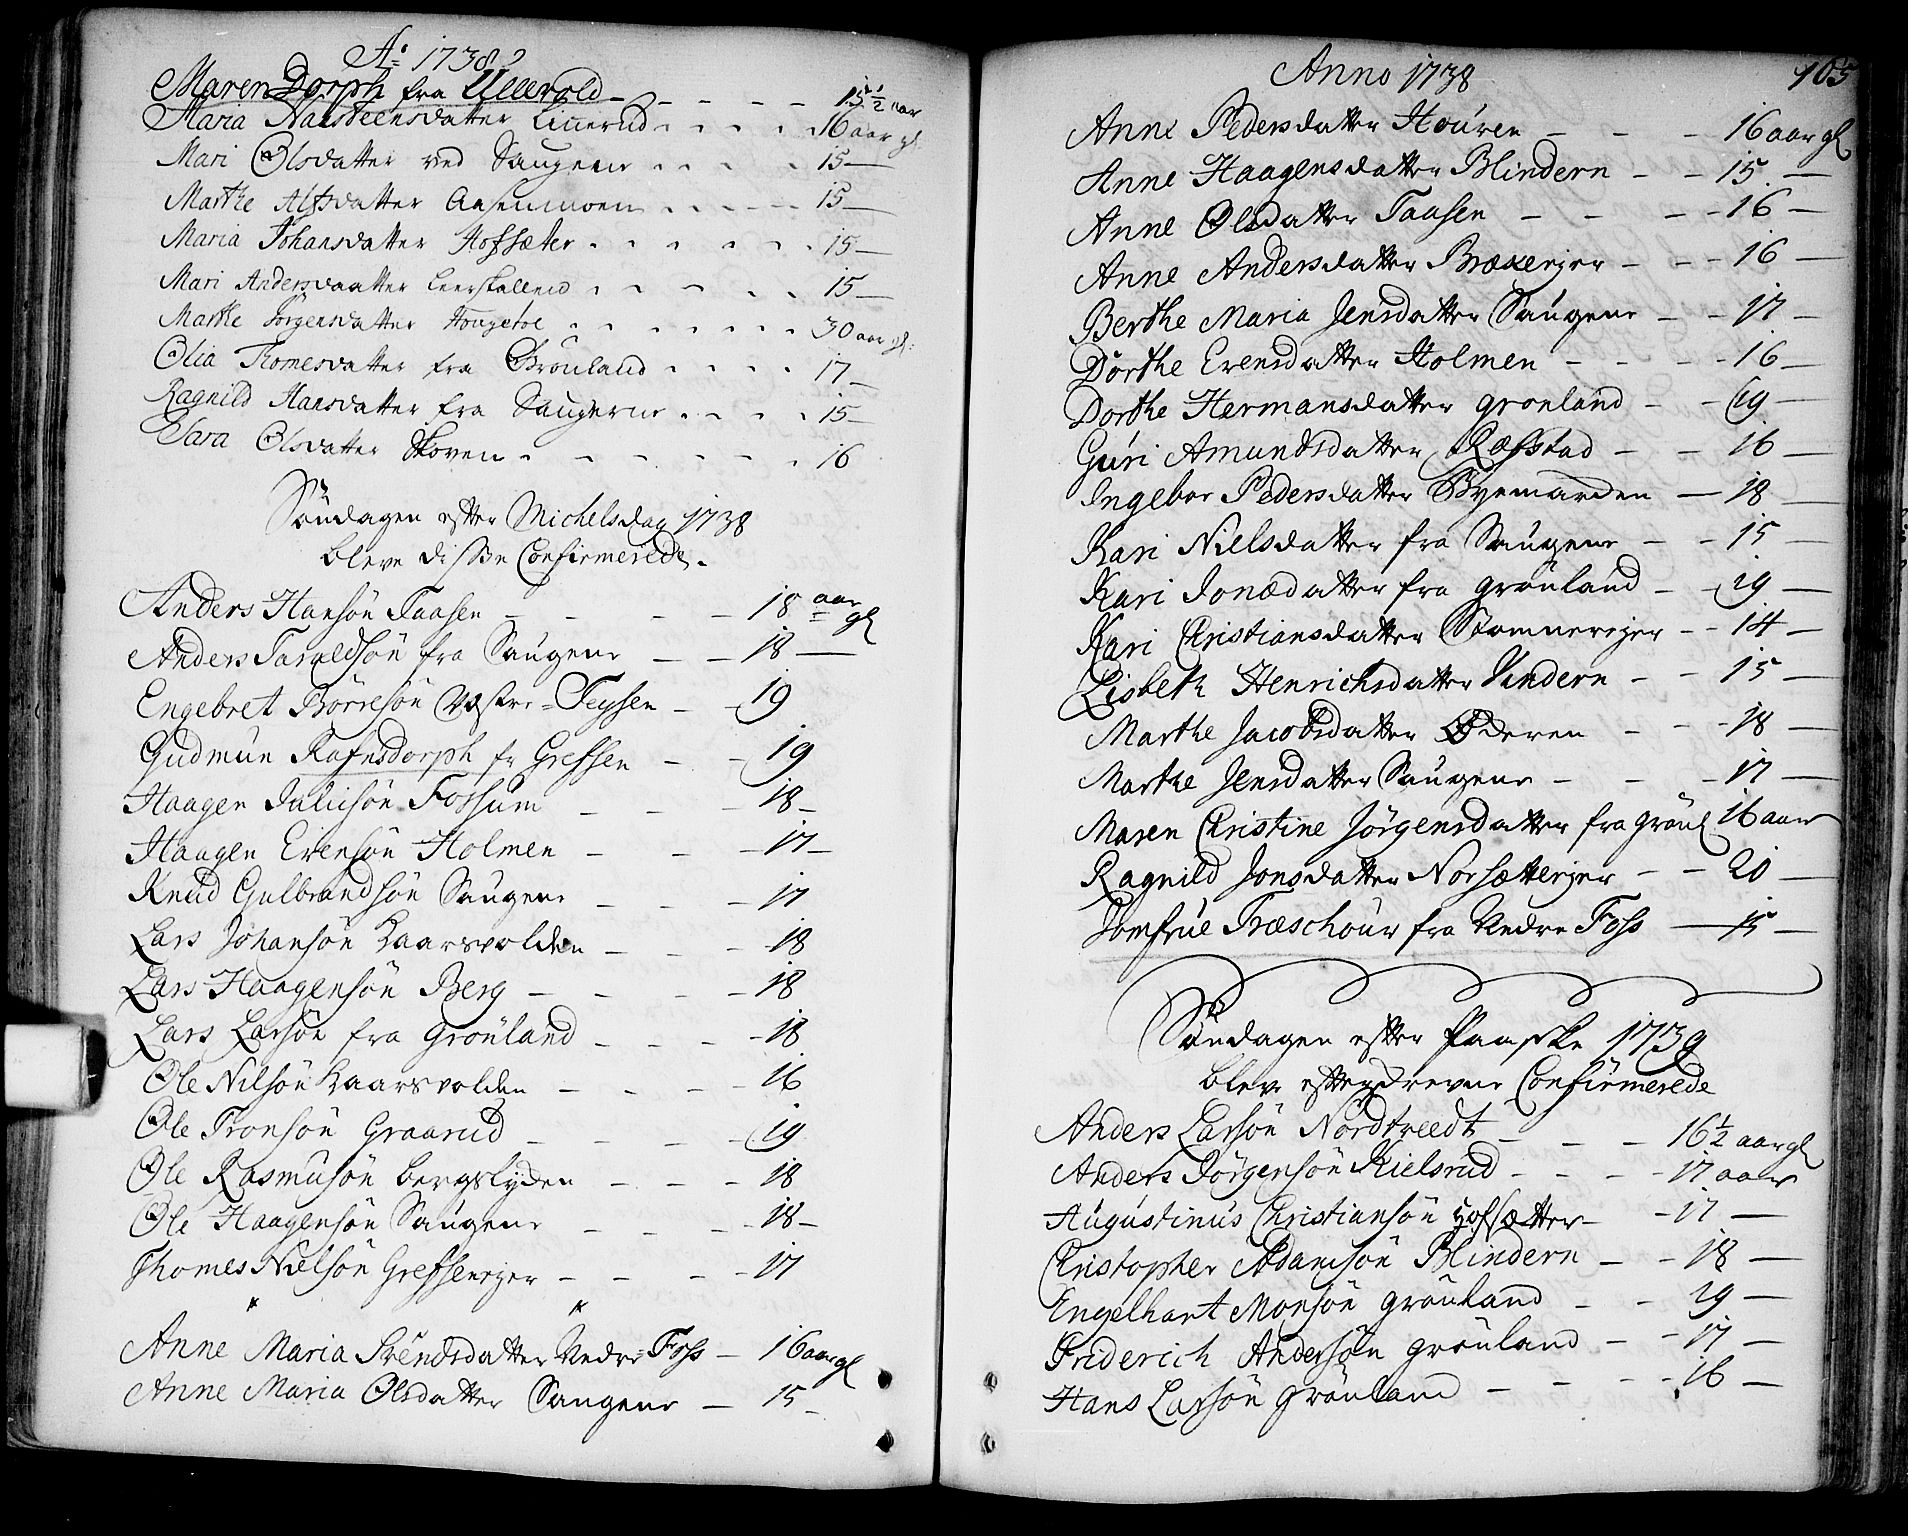 Ao 1738
Maren Dorph fra Ullevold - - - - - 15 1/2 aar
Maria Halsteensdatter Linnerud - - - - 16 aar gl.
Mari Olsdatter ved Saugene - - - - 15 —
Marthe Alfsdatter Aasenmoen - - - - 15 —
Maria Johansdatter Hofsæter - - - - - 15 —
Mari Andersdaatter Leerskallen - - - - - 15 —
Marthe Jørgensdatter - - - - - - 30 aar gl.
Olia Thomesdatter fra Grönland - - - - 17 —
Ragnild Hansdatter fra Saugerne - - - - 15 —
Sara Olsdatter Skoven - - - - - - 16
Söndagen efter Michelsdag 1738
bleve disse Confirmerede.
Anders Hansön Taasen - - - - 18 aar gl
Anders Taraldsön fra Saugene - - 18 —
Engebret Börresön Væstre = Teysen - - 19
Gudmun Rafnsdorph fr Grefsen - - 19
Haagen Juliusön Fossum - - - 18 -
Haagen Evensön Holmen - - - 17 -
Knud Gulbrandsön Saugene - - - 17
Lars Johansön Kaarsvolden - - - 18
Lars Haagensön Berg - - - - 18
Lars Larsön fra Grönland - - - 18
Ole Nilsön Kaarsvolden - - - 16
Ole Tronsön Graarud - - - 19
Ole Rasmusön Bergslyden - - - 18
Ole Haagensön Saugene - - - 18 -
Thomes Nielsön Grefseneyer - - - - 17
Anne Maria Svendsdatter Nedre = Foss - 16 aar gl
Anne Maria Olsdatter Saugene - 15 -
Anno 1738
105
Anne Pedersdatter Houren - - - 16 aar gl
Anne Haagensdatter Blindern - - 15 —
Anne Olsdatter Taasen - - - - 16 —
Anne Andersdatter Brækeeyer - - - 16 —
Berthe Maria Jensdatter Saugene - - 17 —
Dörthe Evensdatter Holmen - - - - 16 —
Dorthe Hermansdatter Grönland - - 19 —
Guri Amundsdatter Ræfstad - - 16 —
Ingebor Pedersdatter Byemarden — 18 —
Kari Nielsdatter fra Saugene - - 15 —
Kari Jonædatter fra Grönland - - 19 —
Kari Christiansdatter Stomnereyer - - 14 —
Lisbeth Henrichsdatter Vindern - - 15 —
Marthe Jacobsdatter Öderen - - - 18 —
Marthe Jensdatter Saugene - - - 17 —
Maren Christine Jörgensdatter fra Grönl 16 aar
Ragnild Jonsdatter Norsætterjer - - 20 —
Jomfrue Træschour fra Nedre Foss — 15 —
Söndagen efter Paaske 1739
bleve efterskrevne Confirmerede
Anders Larsön Nordtveedt - - - 16 1/2 aar gl
Anders Jörgensön Kielsrud - - - - 17 aar
Augustinus Christiansön Hofsætter - - 17 —
Christopher Adamsön Blindern - - 18 —
Engelhart Monsön Grönland - - 19 —
Friderich Andersön Grönland - - 17 —
Hans Larsön Grönland - - - - 16 —